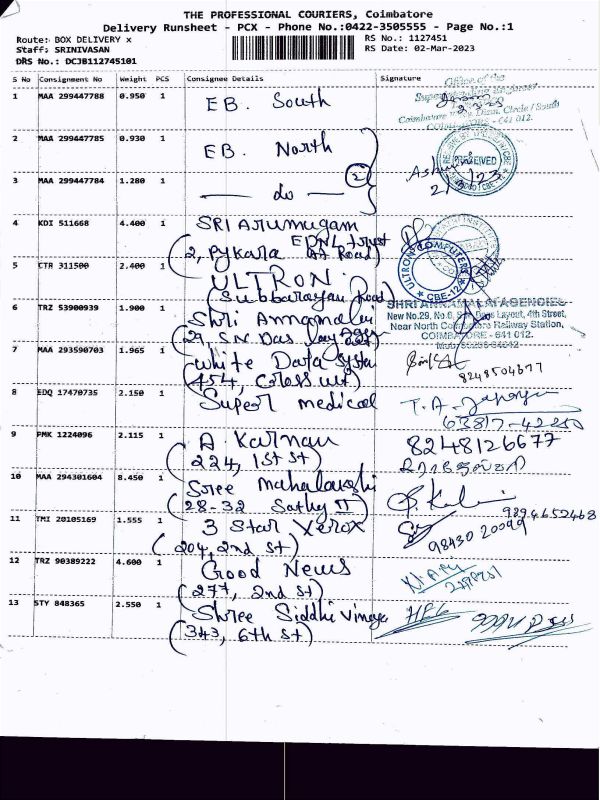 THE PROFESSIONAL COURIERS, Coimbatore
Delivery Runsheet - PCX - Phone No.:0422-3505555 - Page No.:1
Route: BOX DELIVERY x RS No.: 1127451
Staff: SRINIVASAN RS Date: 02-Mar-2023
DRS No.: DCJB112745101
S No Consignment No Weight PCS Consignee Details Signature
1 MAA 299447788 0.950 1 EB. South
Office of the
Coimbatore Circle / South
COIMBATORE - 641 012.
2 MAA 299447785 0.930 1 EB. North
RECEIVED
3 MAA 299447784 1.280 1 — do — 2
4 KDI 511668 4.400 1 SRI Arumugam
(2, Pykara Road)
5 CTR 311500 2.400 1 ULTRON
(Subbarayan Road)
ULTRON COMPUTERS
CBE-12
6 TRZ 53900939 1.900 1 Shri Annamalai
(29, S.N. Das Lay
SHRI ANNAMALAI AGENCIES
New No.29, Layout, 4th Street,
Near North Coimbatore Railway Station,
COIMBATORE - 641 012.
7 MAA 293590703 1.965 1 White Data System
(454, Cross cut)
8248504677
8 EDQ 17470735 2.150 1 Super medical
T.A.
63817-42250
9 PMK 1224096 2.115 1 A Karnan
(224, 1st St)
8248126677
10 MAA 294301604 8.450 1 Sree Mahalakshi
(28-32 Sathy II
9894652468
11 TMI 20105169 1.555 1 3 Star Xerox
(204, 2nd St)
98430 20099
12 TRZ 90389222 4.600 1 Good News
(277, 2nd St)
13 STY 848365 2.550 1 Shree Siddhi Vinaya
(343, 6th St)